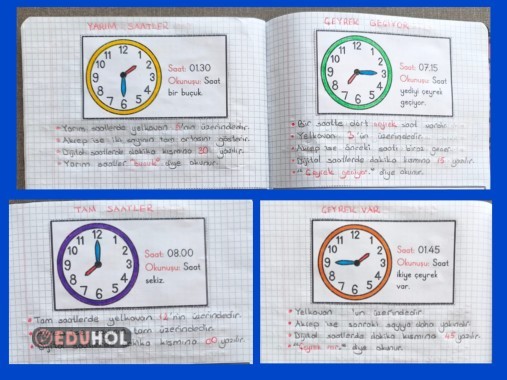 YARIM SAATLER
12
11 1
10 2
9 3
8 4
7 5
6
Saat: 01.30
Okunuşu: Saat
bir buçuk.
• Yarım saatlerde yelkovan 6'nın üzerindedir.
• Akrep ise iki sayının tam ortasını gösterir.
• Dijital saatlerde dakika kısmına 30 yazılır.
• Yarım saatler "buçuk" diye okunur.
ÇEYREK GEÇİYOR
12
11 1
10 2
9 3
8 4
7 5
6
Saat: 07.15
Okunuşu: Saat
yediyi çeyrek
geçiyor.
• Bir saatte dört çeyrek saat vardır.
• Yelkovan 3'ün üzerindedir.
• Akrep ise önceki saati biraz geçer.
• Dijital saatlerde dakika kısmına 15 yazılır.
• "Çeyrek geçiyor." diye okunur.
TAM SAATLER
12
11 1
10 2
9 3
8 4
7 5
6
Saat: 08.00
Okunuşu: Saat
sekiz.
• Tam saatlerde yelkovan 12'nin üzerindedir.
EDUHOL
tam üzerindedir.
dakika kısmına 00 yazılır.
ÇEYREK VAR
12
11 1
10 2
9 3
8 4
7 5
6
Saat: 01.45
Okunuşu: Saat
ikiye çeyrek
var.
• Yelkovan 'un üzerindedir.
• Akrep ise sonraki sayıya daha yakındır.
• Dijital saatlerde dakika kısmına 45 yazılır.
• "Çeyrek var." diye okunur.